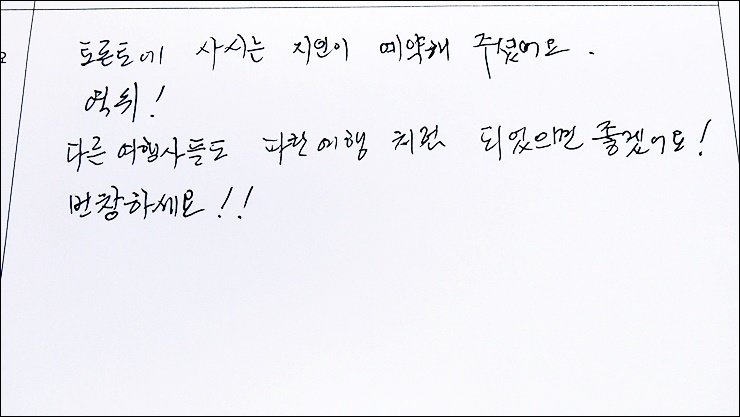 토론토에 사시는 지인이 예약해 주셨어요.
역쉬!
다른 여행사들도 파란여행 처럼 되었으면 좋겠어요!
번창하세요!!